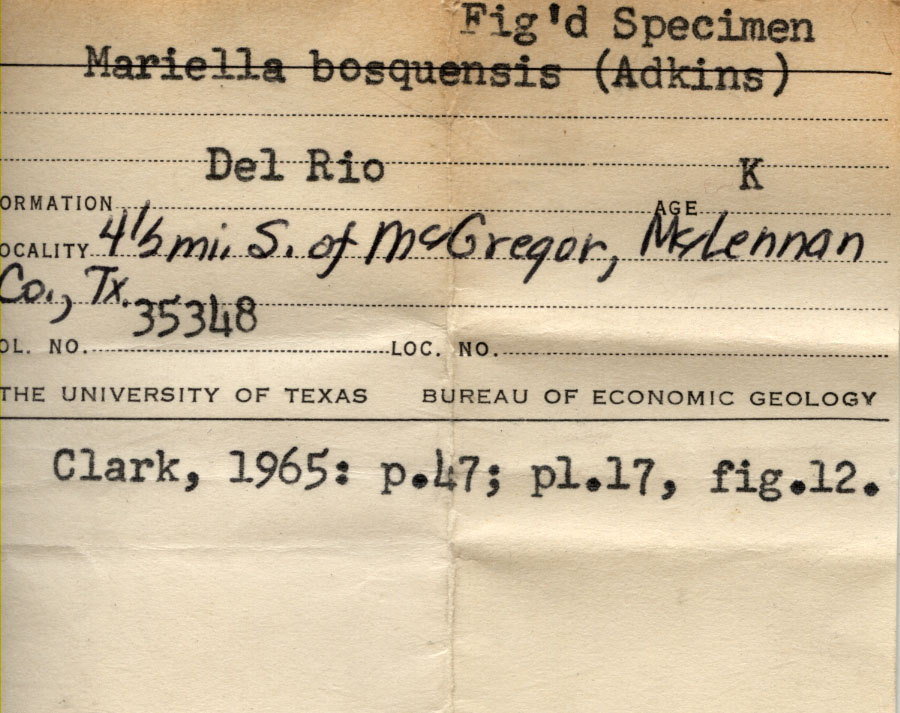 Fig'd Specimen
Mariella bosquensis (Adkins)
Del Rio K
ORMATION AGE
OCALITY 4½ mi. S. of McGregor, McLennan
Co., Tx.
35348
OL. NO. LOC. NO.
THE UNIVERSITY OF TEXAS BUREAU OF ECONOMIC GEOLOGY
Clark, 1965: p.47; pl.17, fig.12.